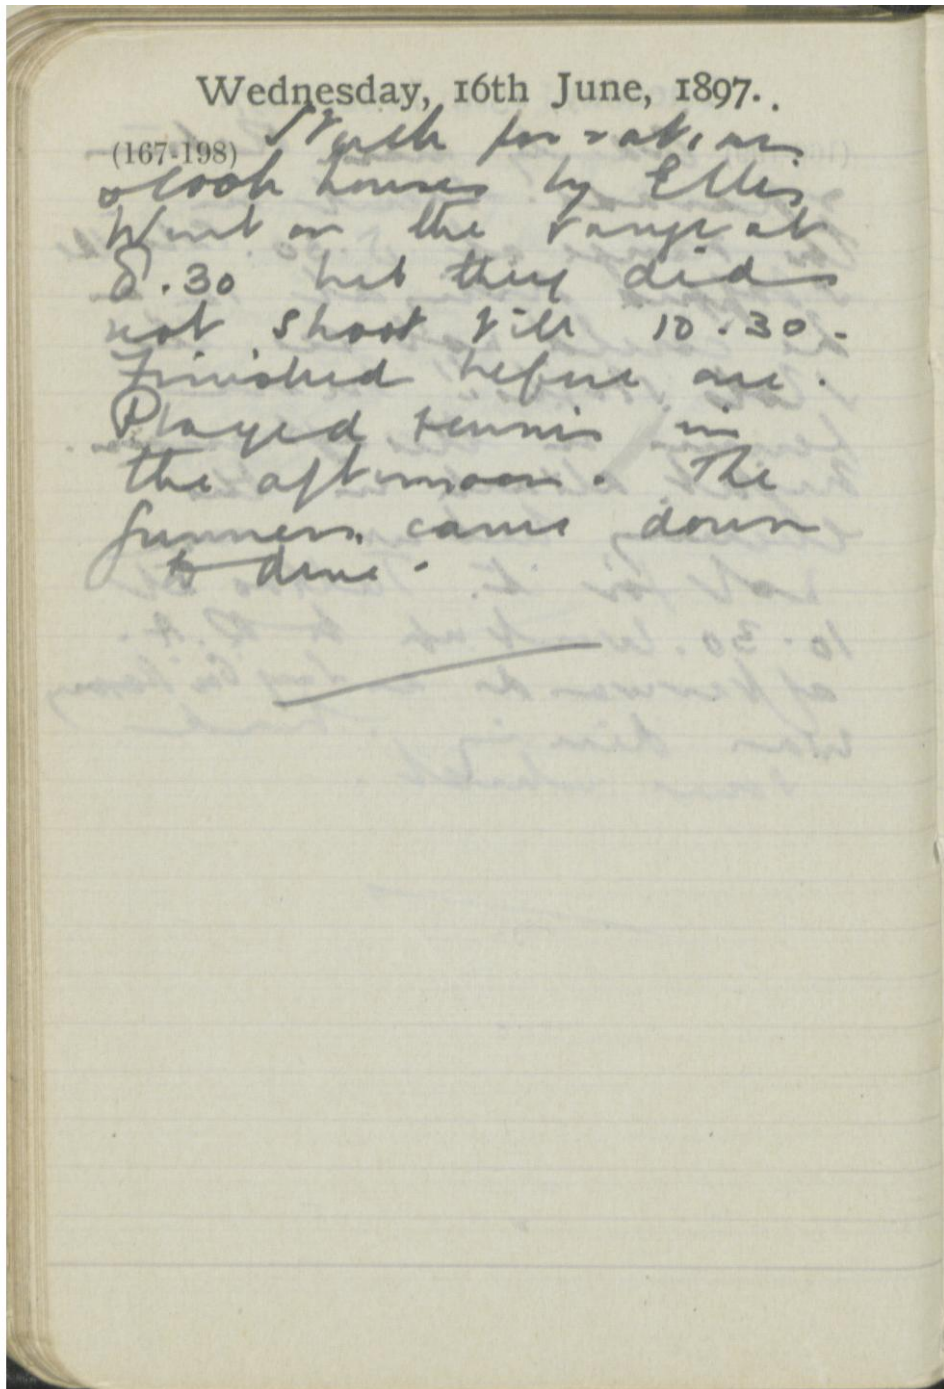 Wednesday, 16th June, 1897.
(167-198) for rations
& houses by Ellis
Went on the range at
8.30 but they did
not shoot till 10.30.
Finished before one.
Played tennis in
the afternoon. The
gunners came down
to dine.